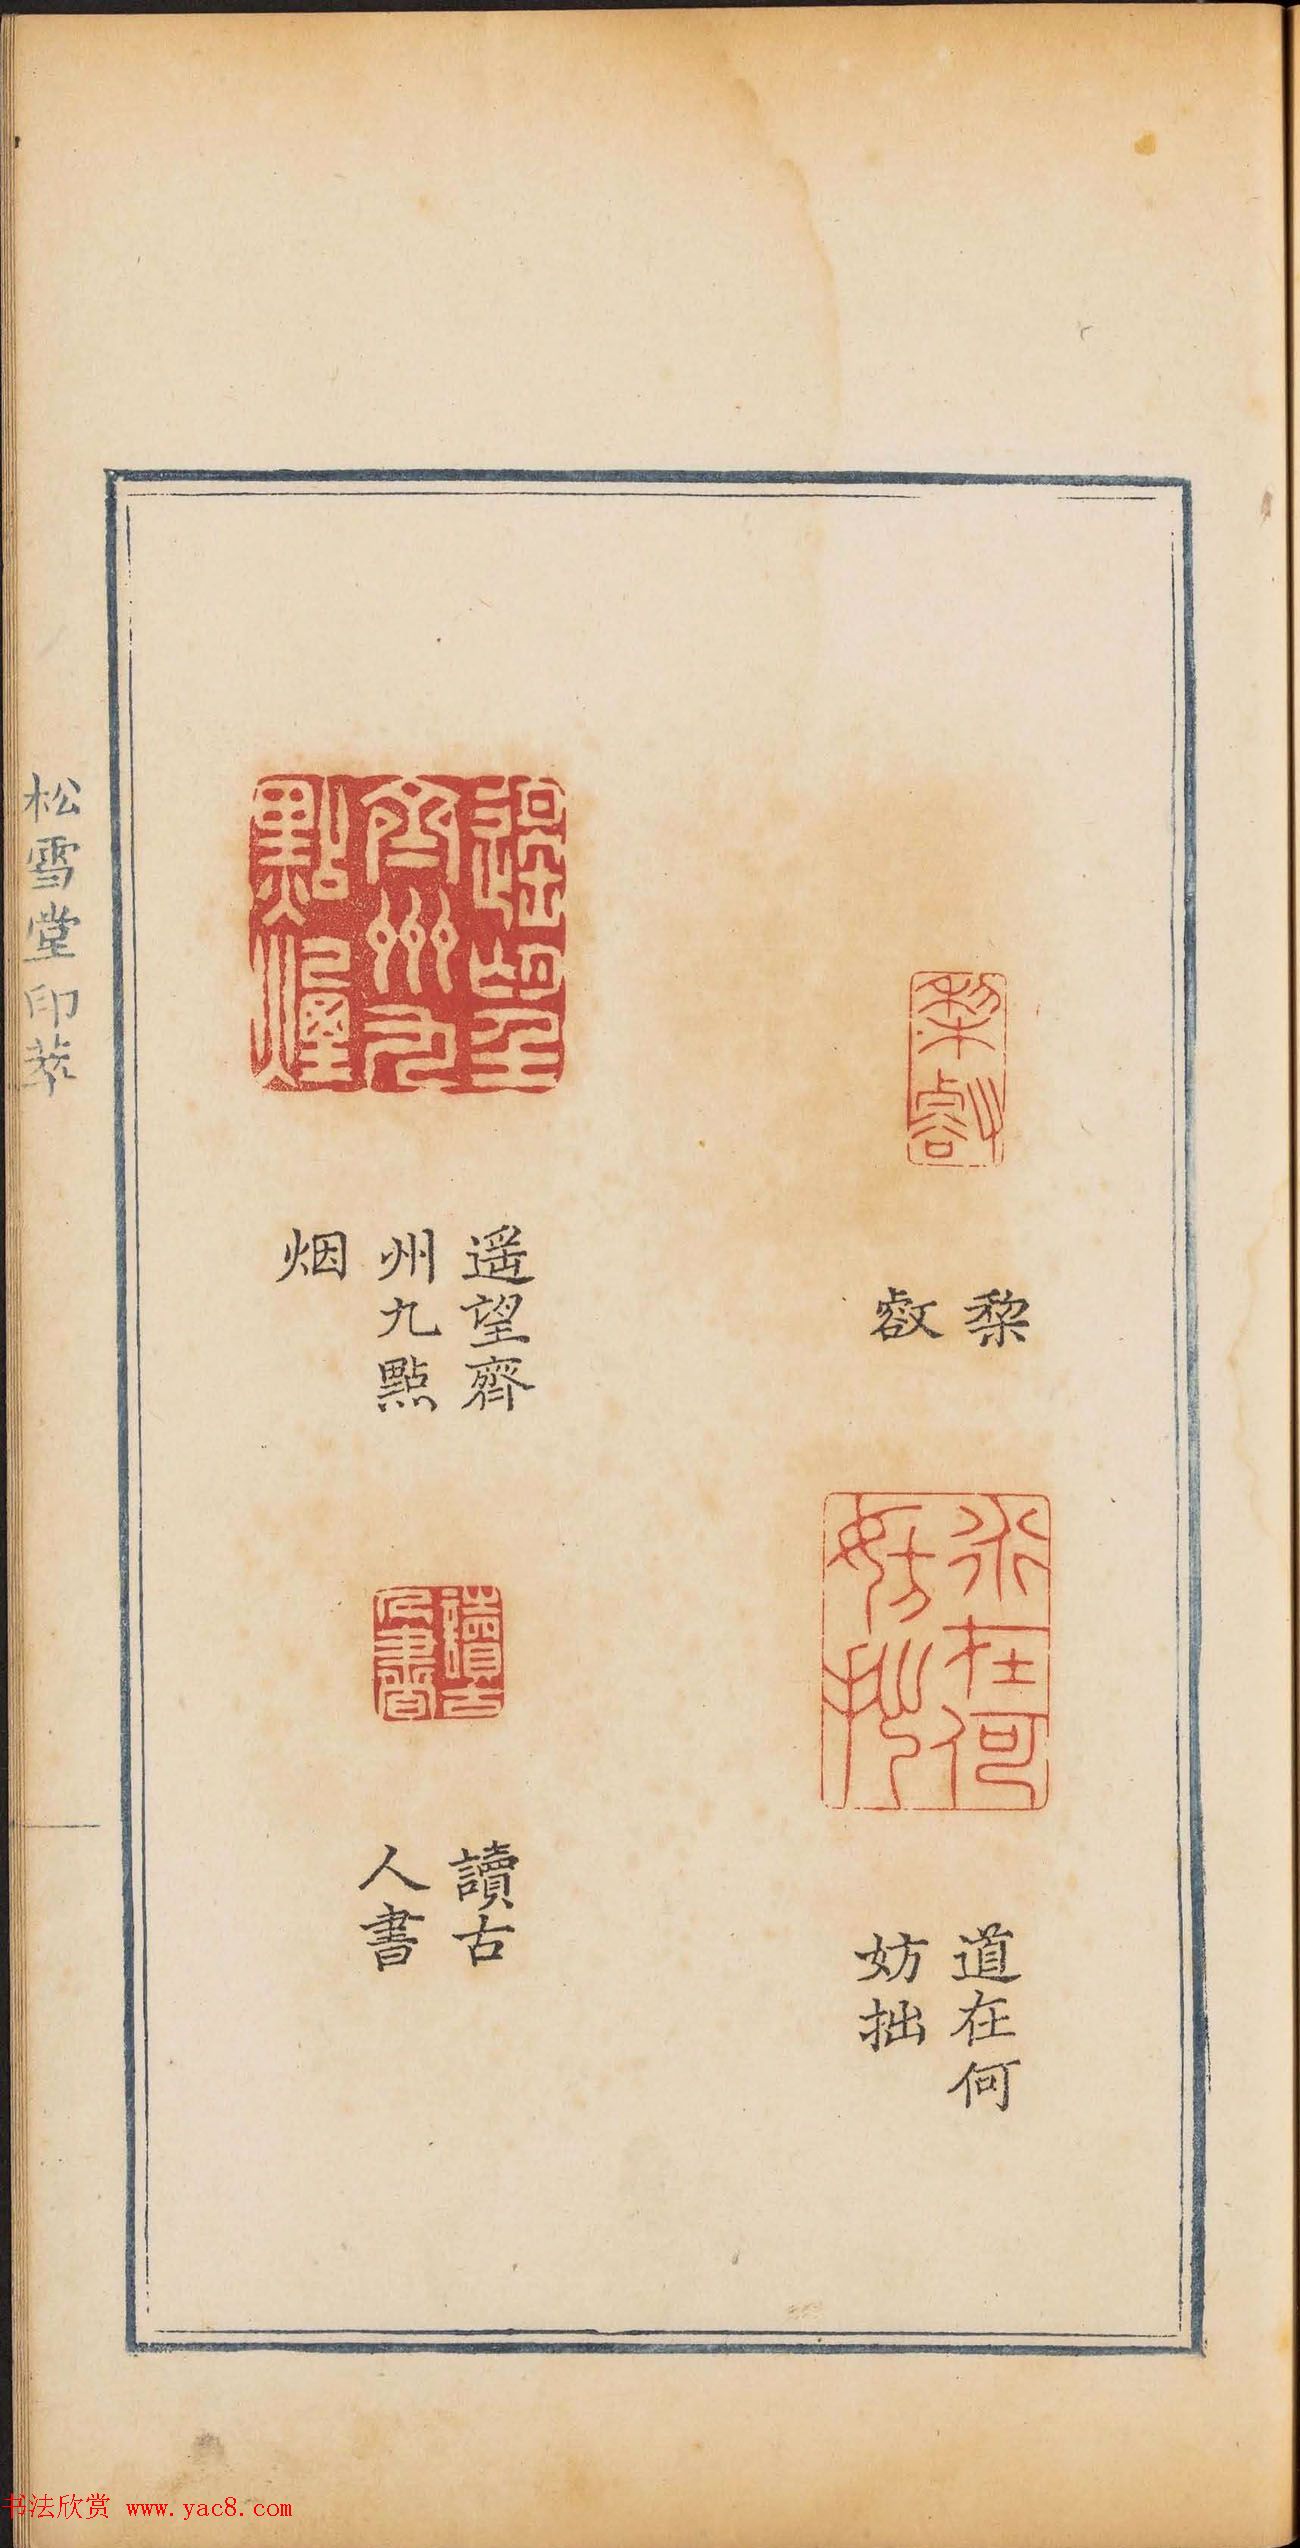 黎
㕡
道在何
妨拙
遥望齊
州九點
烟
讀古
人書
松雪堂印萃
书法欣赏 www.yac8.com